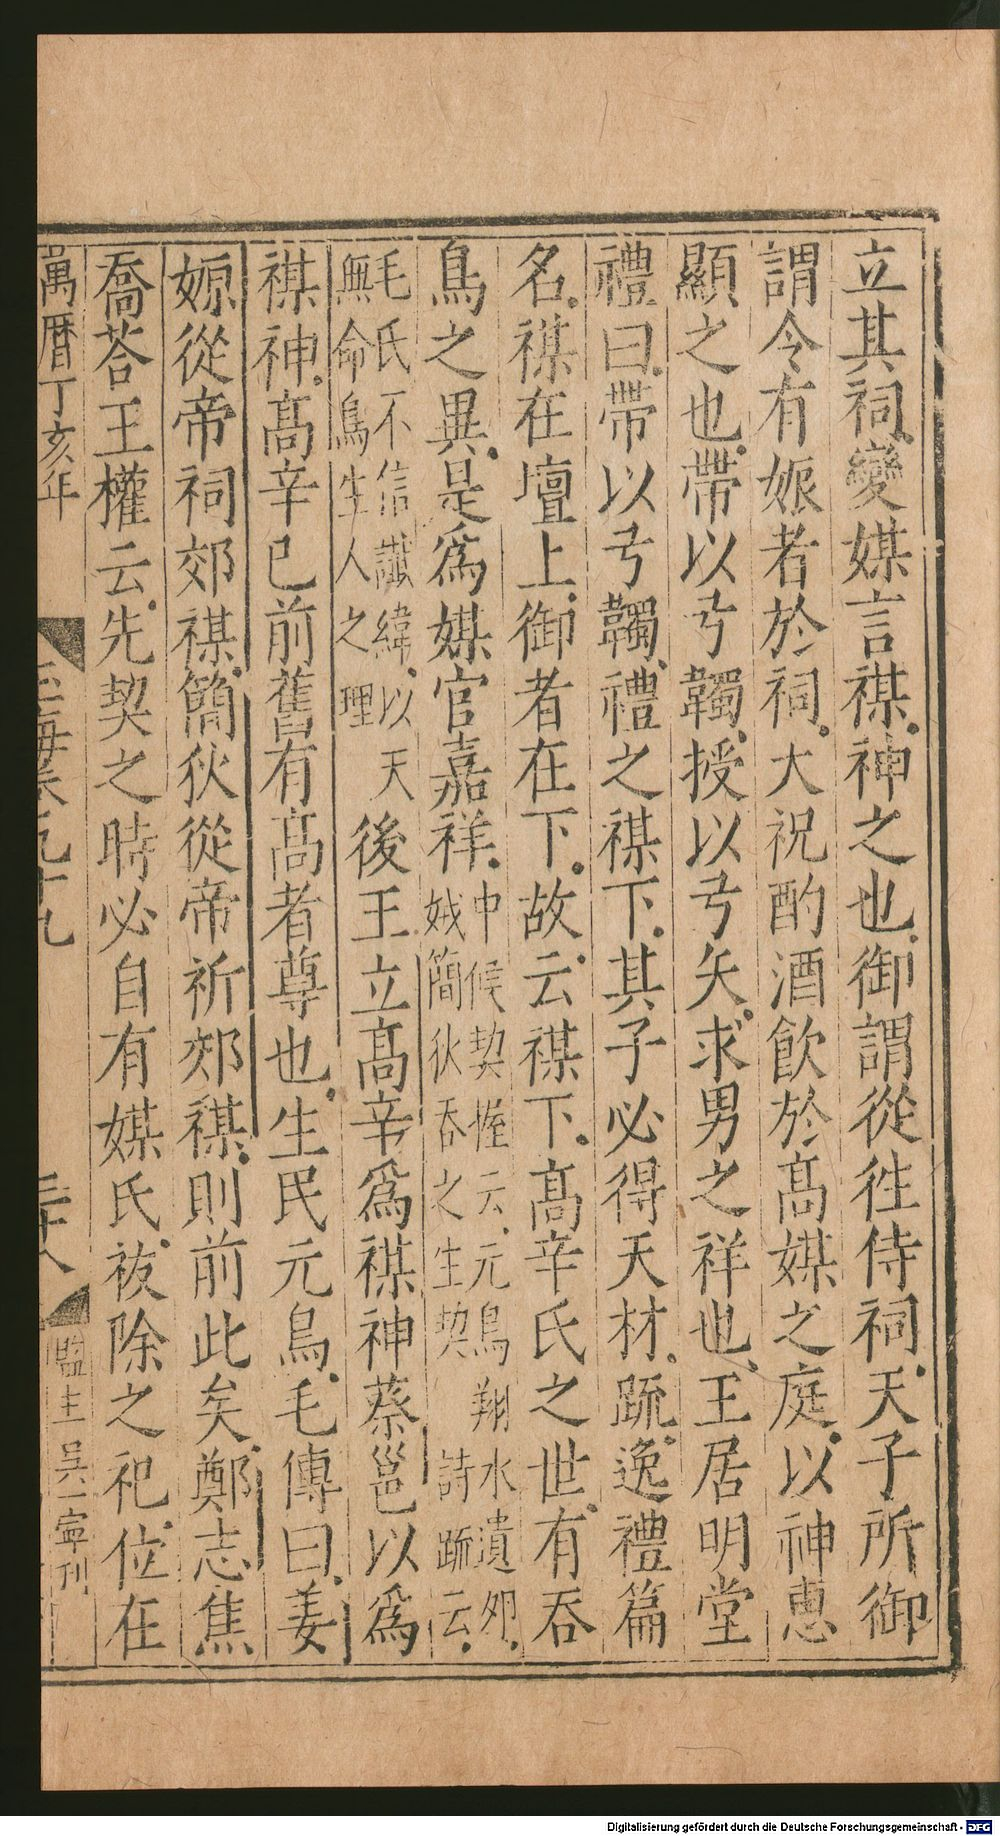 立其祠變媒言禖神之也御謂從徃侍祠天子所御
謂今有娠者於祠大祝酌酒飲於高媒之庭以神惠
顯之也帶以弓韣授以弓矢求男之祥也王居明堂
禮曰帶以弓韣禮之禖下其子必得天材疏逸禮篇
名禖在壇上御者在下故云禖下高辛氏之世有吞
鳥之異是為媒官嘉祥中候契握云元鳥翔水遺卵
娀簡狄吞之生契詩疏云
毛氏不信讖緯以天
無命鳥生人之理後王立高辛為禖神蔡邕以為
禖神高辛已前舊有高者尊也生民元鳥毛傳曰姜
嫄從帝祠郊禖簡狄從帝祈郊禖則前此矣鄭志焦
喬荅王權云先契之時必自有媒氏祓除之祀位在
萬曆丁亥年
玉海卷九十九
三十八
監生吳一寧刊
Digitalisierung gefördert durch die Deutsche Forschungsgemeinschaft - DFG